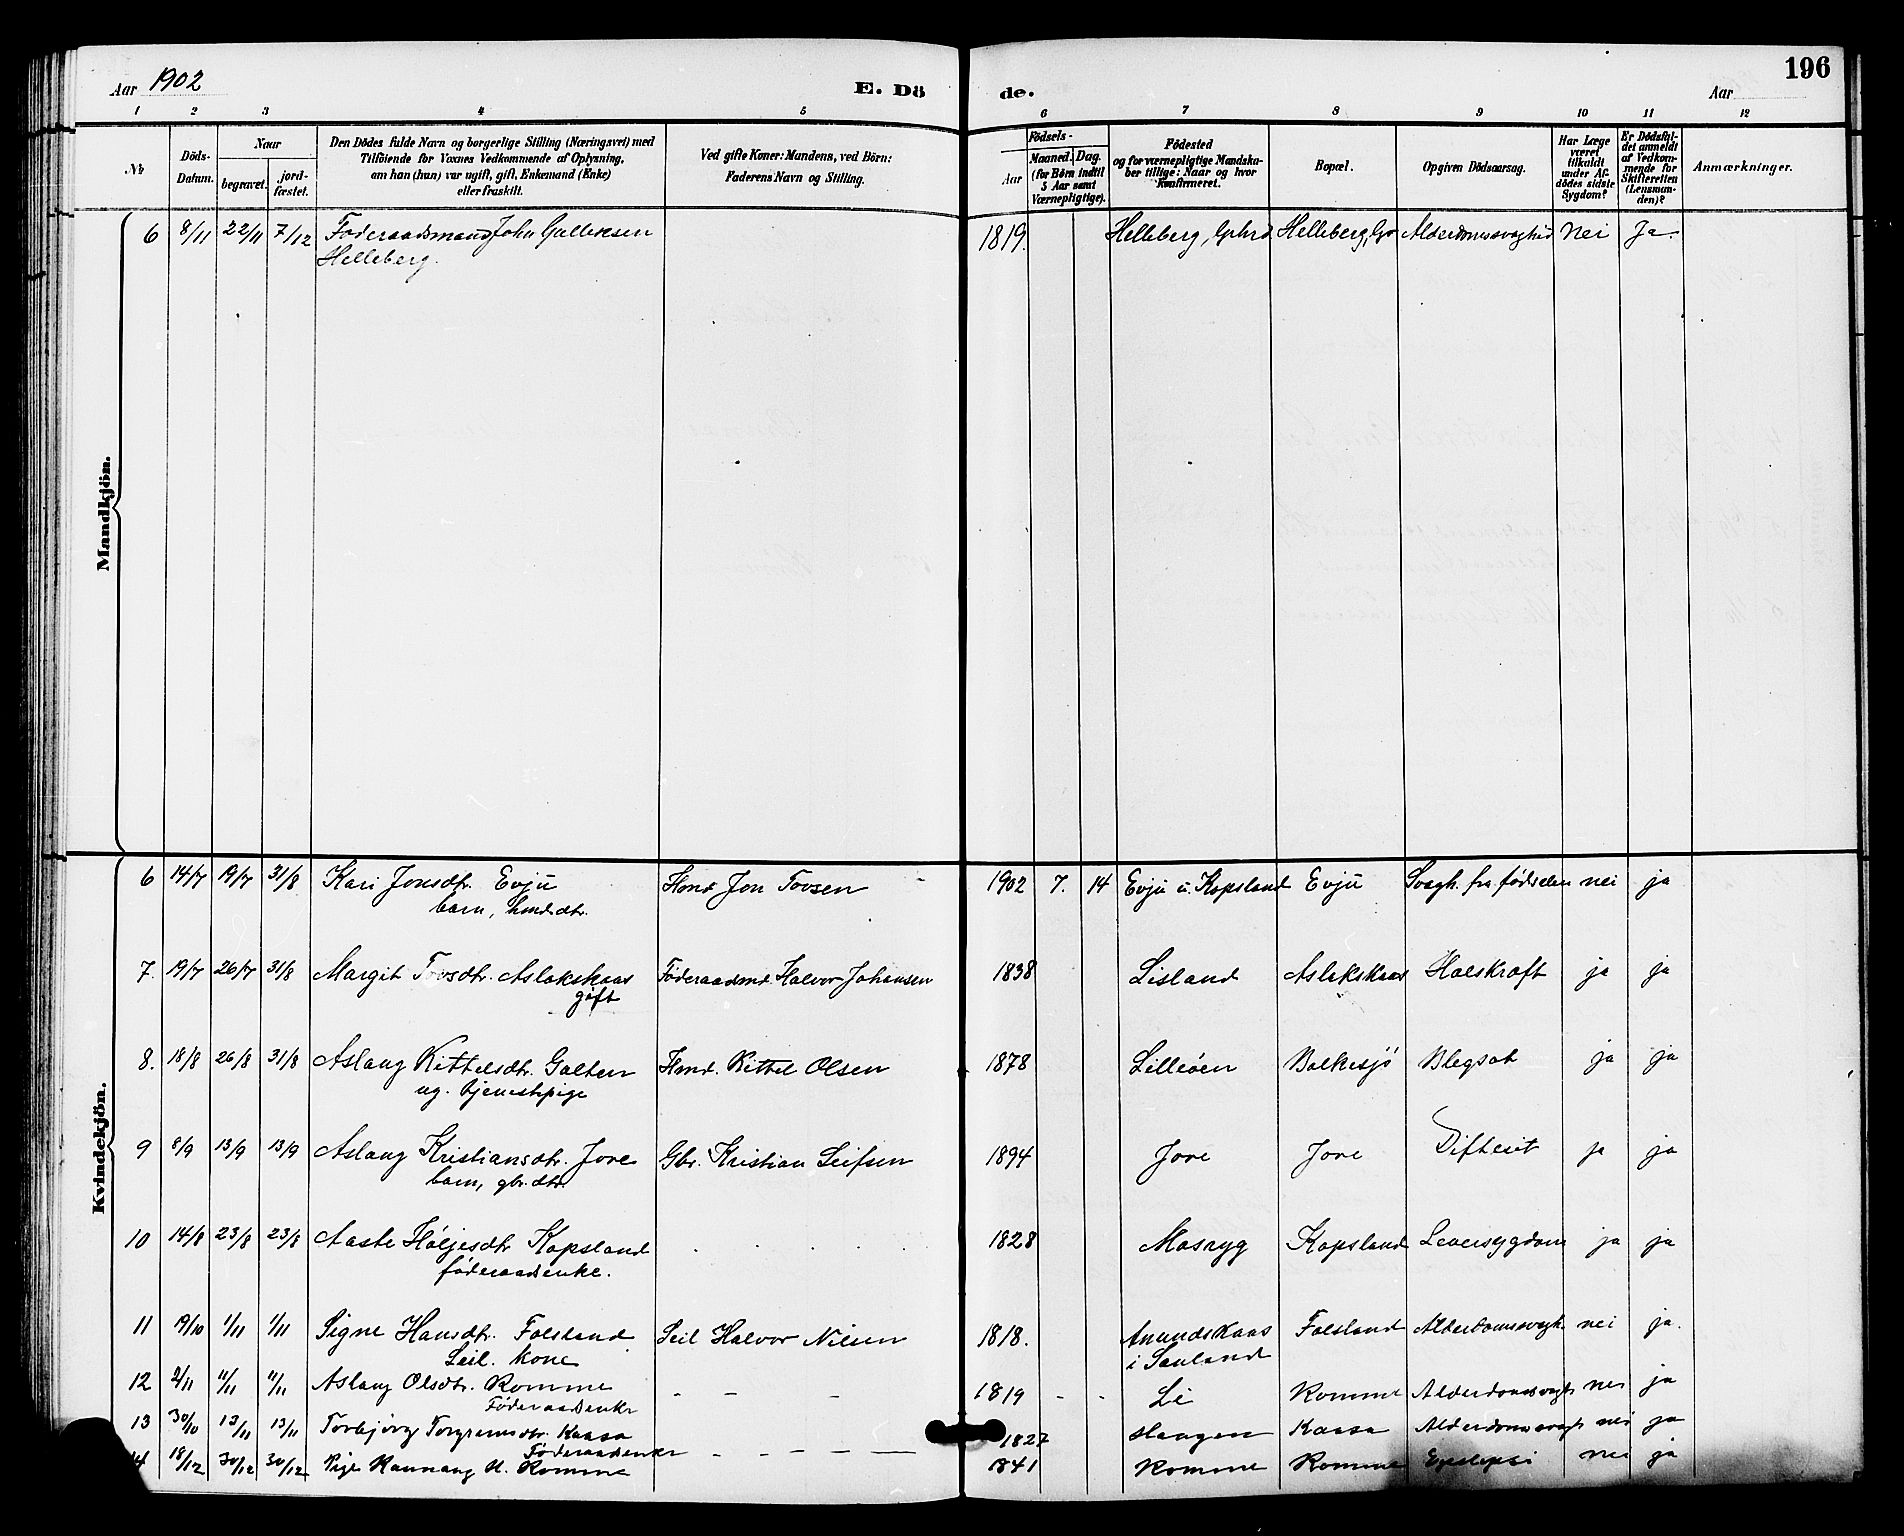 196
Aar 1902 E. Dö de. Aar
1 2 3 4 5 6 7 8 9 10 11 12
No Döds-Datum. Naar begravet. jordfæstet. Den Dödes fulde Navn og borgerlige Stilling (Næringsvei) med Tilföiende for Voxnes Vedkommende af Oplysning, om han (hun) var ugift, gift, Enkemand (Enke) eller fraskilt. Ved gifte Koner: Mandens, ved Börn: Faderens Navn og Stilling. Födsels- Aar Maaned. Dag. (for Börn indtil 5 Aar samt Værnepligtige). Födested og for værnepligtige Mandskaber tillige: Naar og hvor Konfirmeret. Bopæl. Opgiven Dödsaarsag. Har Læge været tilkaldt under Afdödes sidste Sygdom? Er Dödsfaldet anmeldt af Vedkommende for Skifteretten (Lensmanden)? Anmærkninger.
Mandkjön.
6 8/11 22/11 7/12 Föderaadsmand John Gulleksen 1819. Helleberg, Grhrd Helleberg, Gr Alderdomssvaghed Nei Ja.
Helleberg.
Kvindekjön.
6 14/7 19/7 31/8 Kari Jonsdtr. Evju Hmd Jon Tovsen 1902 7. 14 Evju u. Kopsland Evju Svagh. fra fødselen nei ja
barn, hmd.dtr.
7. 19/7 26/7 31/8 Margit Tovsdtr. Aslakskaas Föderaadmd. Halvor Johansen 1838 Lisland Aslakskaas Halskræft ja ja
gift
8. 18/8 26/8 31/8 Aslaug Kittelsdtr. Galten Hmd. Kittel Olsen 1878 Lilleøen Bolkesjø Blegsot ja ja
ug. tjenestpige
9 8/9 13/9 13/9 Aslaug Kristiansdtr. Jore Gbr. Kristian Leifsen 1894 Jore Jore Difterit ja ja
barn, gbr.dtr.
10 14/8 23/8 23/8 Aaste Høljesdtr Kopsland 1828 Mosryg Kopsland Leversygdom ja ja
føderaadsenke.
11 19/10 1/11 1/11 Signe Hansdtr. Folsland Leil Halvor Nilsen 1818. Anundskaas Folsland Alderdomssvagh. nei ja.
Leil. kone i Sauland
12 2/11 11/11 11/11 Aslaug Olsdtr. Romme - - - 1819 - - Li Romme Alderdomssvagh nei ja
Föderaadsenke
13 30/10 13/11 13/11 Torbjörg Torgrimsdtr. Kaasa 1827 Haugen Kaasa Alderdomssvagh nei ja
Föderaadsenke
14 18/12 30/12 30/12 Pige Rannaug H. Romme - - - 1841 Romme Romme Epilepsi nei ja